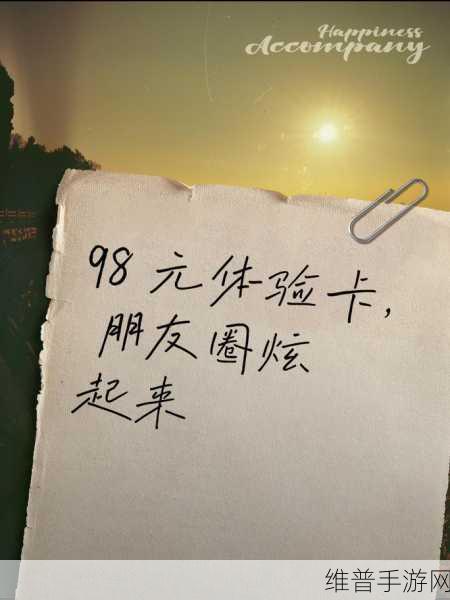 Happiness
Accompany
98元体验卡,
朋友圈炫
起来
维普手游网